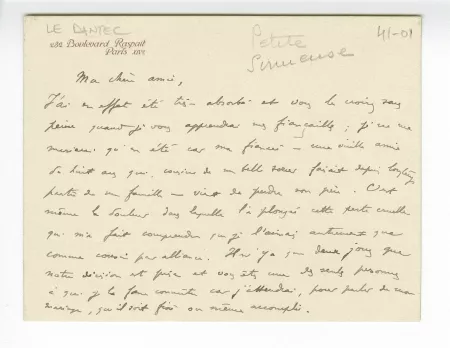 LE DANTEC
41-01
232 Boulevard Raspail
Paris XIVe
Petite
Ma chère amie,
J'ai en effet été très absorbé et vous le croirez sans
peine quand je vous apprendrai mes fiançailles ; je ne me
marierai qu'en été car ma fiancée – une vieille amie
de huit ans qui, cousine de ma belle sœur faisait depuis longtemps
partie de ma famille – vient de perdre son père. C'est
même la douleur dans laquelle l'a plongée cette perte cruelle
qui m'a fait comprendre que je l'aimais autrement que
comme cousin par alliance. Il n'y a que deux jours que
notre décision est prise et vous êtes une des seules personnes
à qui je la fasse connaître car j'attendrai, pour parler de mon
mariage, qu'il soit fixé ou même accompli.